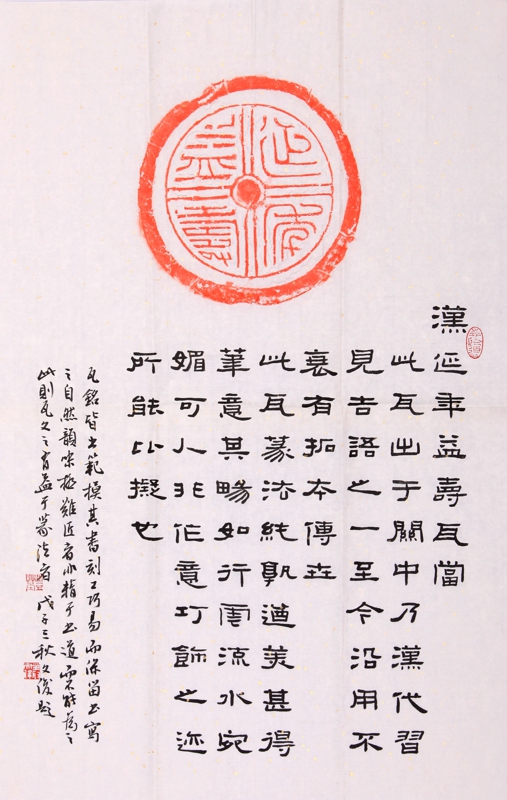 延年益壽
漢延年益壽瓦當
此瓦出于關中乃漢代習
見吉語之一至今沿用不
衰有拓本傳世
此瓦篆法純孰遒美甚得
筆意其暢如行雲流水宛
媚可人非作意巧飾之迹
所能比擬也
瓦銘皆出範模其書刻工巧易而保留書寫
之自然韻味極難匠者精于書道而不能為之
此則瓦文之有益于篆法者 戊子三秋文俊題